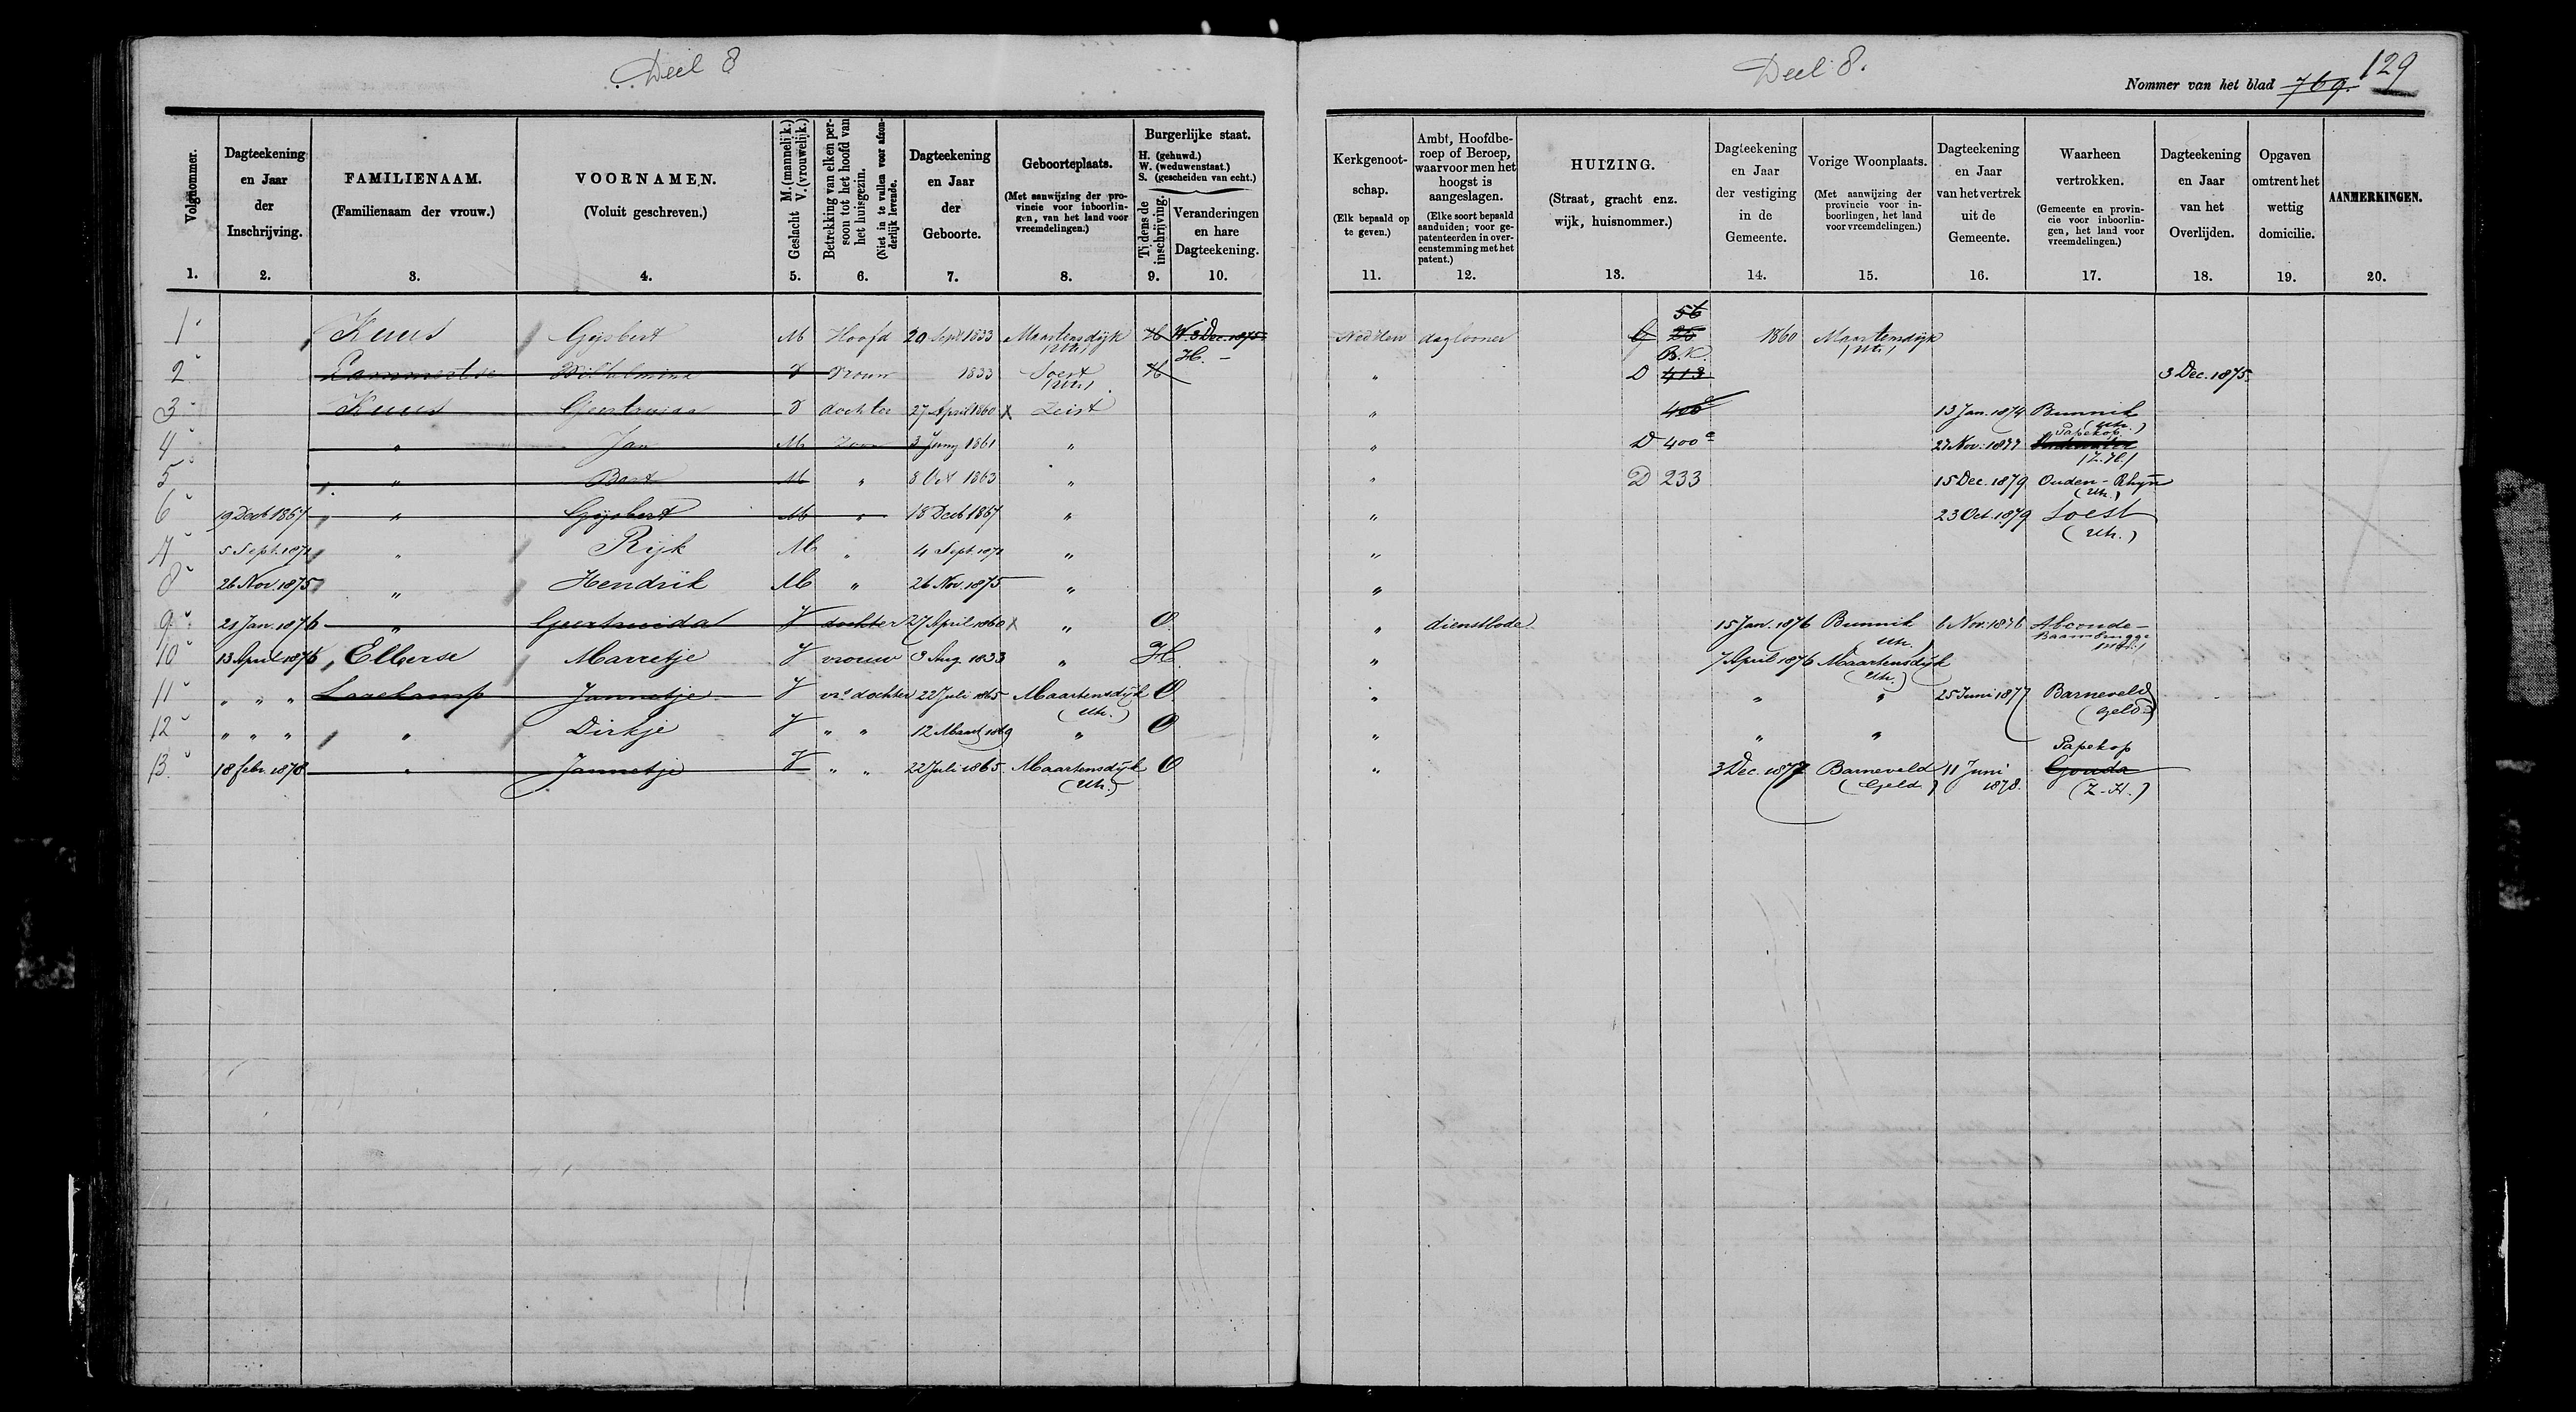 Deel 8
Deel 8.
Nommer van het blad 769. 129
Volgnommer.
Dagteekening en Jaar der Inschrijving.
FAMILIENAAM. (Familienaam der vrouw.)
VOORNAMEN. (Voluit geschreven.)
Geslacht M. (mannelijk.) V. (vrouwelijk.)
Betrekking van elken persoon tot het hoofd van het huisgezin. (Niet in te vullen voor afzonderlijk levende.)
Dagteekening en Jaar der Geboorte.
Geboorteplaats. (Met aanwijzing der provincie voor inboorlingen, van het land voor vreemdelingen.)
Burgerlijke staat.
H. (gehuwd.)
W. (weduwenstaat.)
S. (gescheiden van echt.)
Tijdens de inschrijving.
Veranderingen en hare Dagteekening.
Kerkgenootschap. (Elk bepaald op te geven.)
Ambt, Hoofdberoep of Beroep, waarvoor men het hoogst is aangeslagen. (Elke soort bepaald aanduiden; voor gepatenteerden in overeenstemming met het patent.)
HUIZING. (Straat, gracht enz. wijk, huisnommer.)
Dagteekening en Jaar der vestiging in de Gemeente.
Vorige Woonplaats. (Met aanwijzing der provincie voor inboorlingen, het land voor vreemdelingen.)
Dagteekening en Jaar van het vertrek uit de Gemeente.
Waarheen vertrokken. (Gemeente en provincie voor inboorlingen, het land voor vreemdelingen.)
Dagteekening en Jaar van het Overlijden.
Opgaven omtrent het wettig domicilie.
AANMERKINGEN.
1. 2. 3. 4. 5. 6. 7. 8. 9. 10. 11. 12. 13. 14. 15. 16. 17. 18. 19. 20.
1 Kuus Gijsbert M Hoofd 20 Sept 1833 Maartensdijk (Utr.) H W. 3 Dec. 1875 H - Ned Herv daglooner 56 26 B.K. 1860 Maartensdijk (Utr.)
2 Lammertse Wilhelmina V Vrouw 1833 Soest (Utr.) H " D 413 3 Dec. 1875.
3 Kuus Geertruida V dochter 27 April 1860 X Zeist " 400 13 Jan. 1874 Bunnik (Utr.)
4 " Jan M Zoon 3 Juny 1861 " " D 400 27 Nov. 1877 Papekop (Z.H.)
5 " Bart M " 8 Oct 1863 " " D 233 15 Dec. 1879 Ouden-Rhyn (Utr.)
6 19 Decb 1867 " Gijsbert M " 18 Decb 1867 " " 23 Oct. 1879 Soest (Utr.)
7 5 Sept. 1871 " Rijk M " 4 Sept. 1871 " "
8 26 Nov. 1875 " Hendrik M " 26 Nov. 1875 " "
9 21 Jan. 1876 " Geertruida V dochter 27 April 1860 X " O " dienstbode 15 Jan. 1876 Bunnik Utr. 6 Nov. 1876 Abcoude-Baambrugge (Utr.)
10 13 April 1876 Elberse Marretje V vrouw 3 Aug. 1833 " H. " 7 April 1876 Maartensdijk (Utr.)
11 " " " Jannetje V vrs dochter 22 Juli 1865 Maartensdijk (Utr.) O " " " 25 Juni 1877 Barneveld (Geld.)
12 " " " " Dirkje V " " 12 Maart 1869 " O " " "
13. 18 febr. 1878 " Jannetje V " " 22 Juli 1865. Maartensdijk (Utr.) O " 3 Dec. 1877 Barneveld (Geld.) 11 Juni 1878. Papekop Gouda (Z-H.)